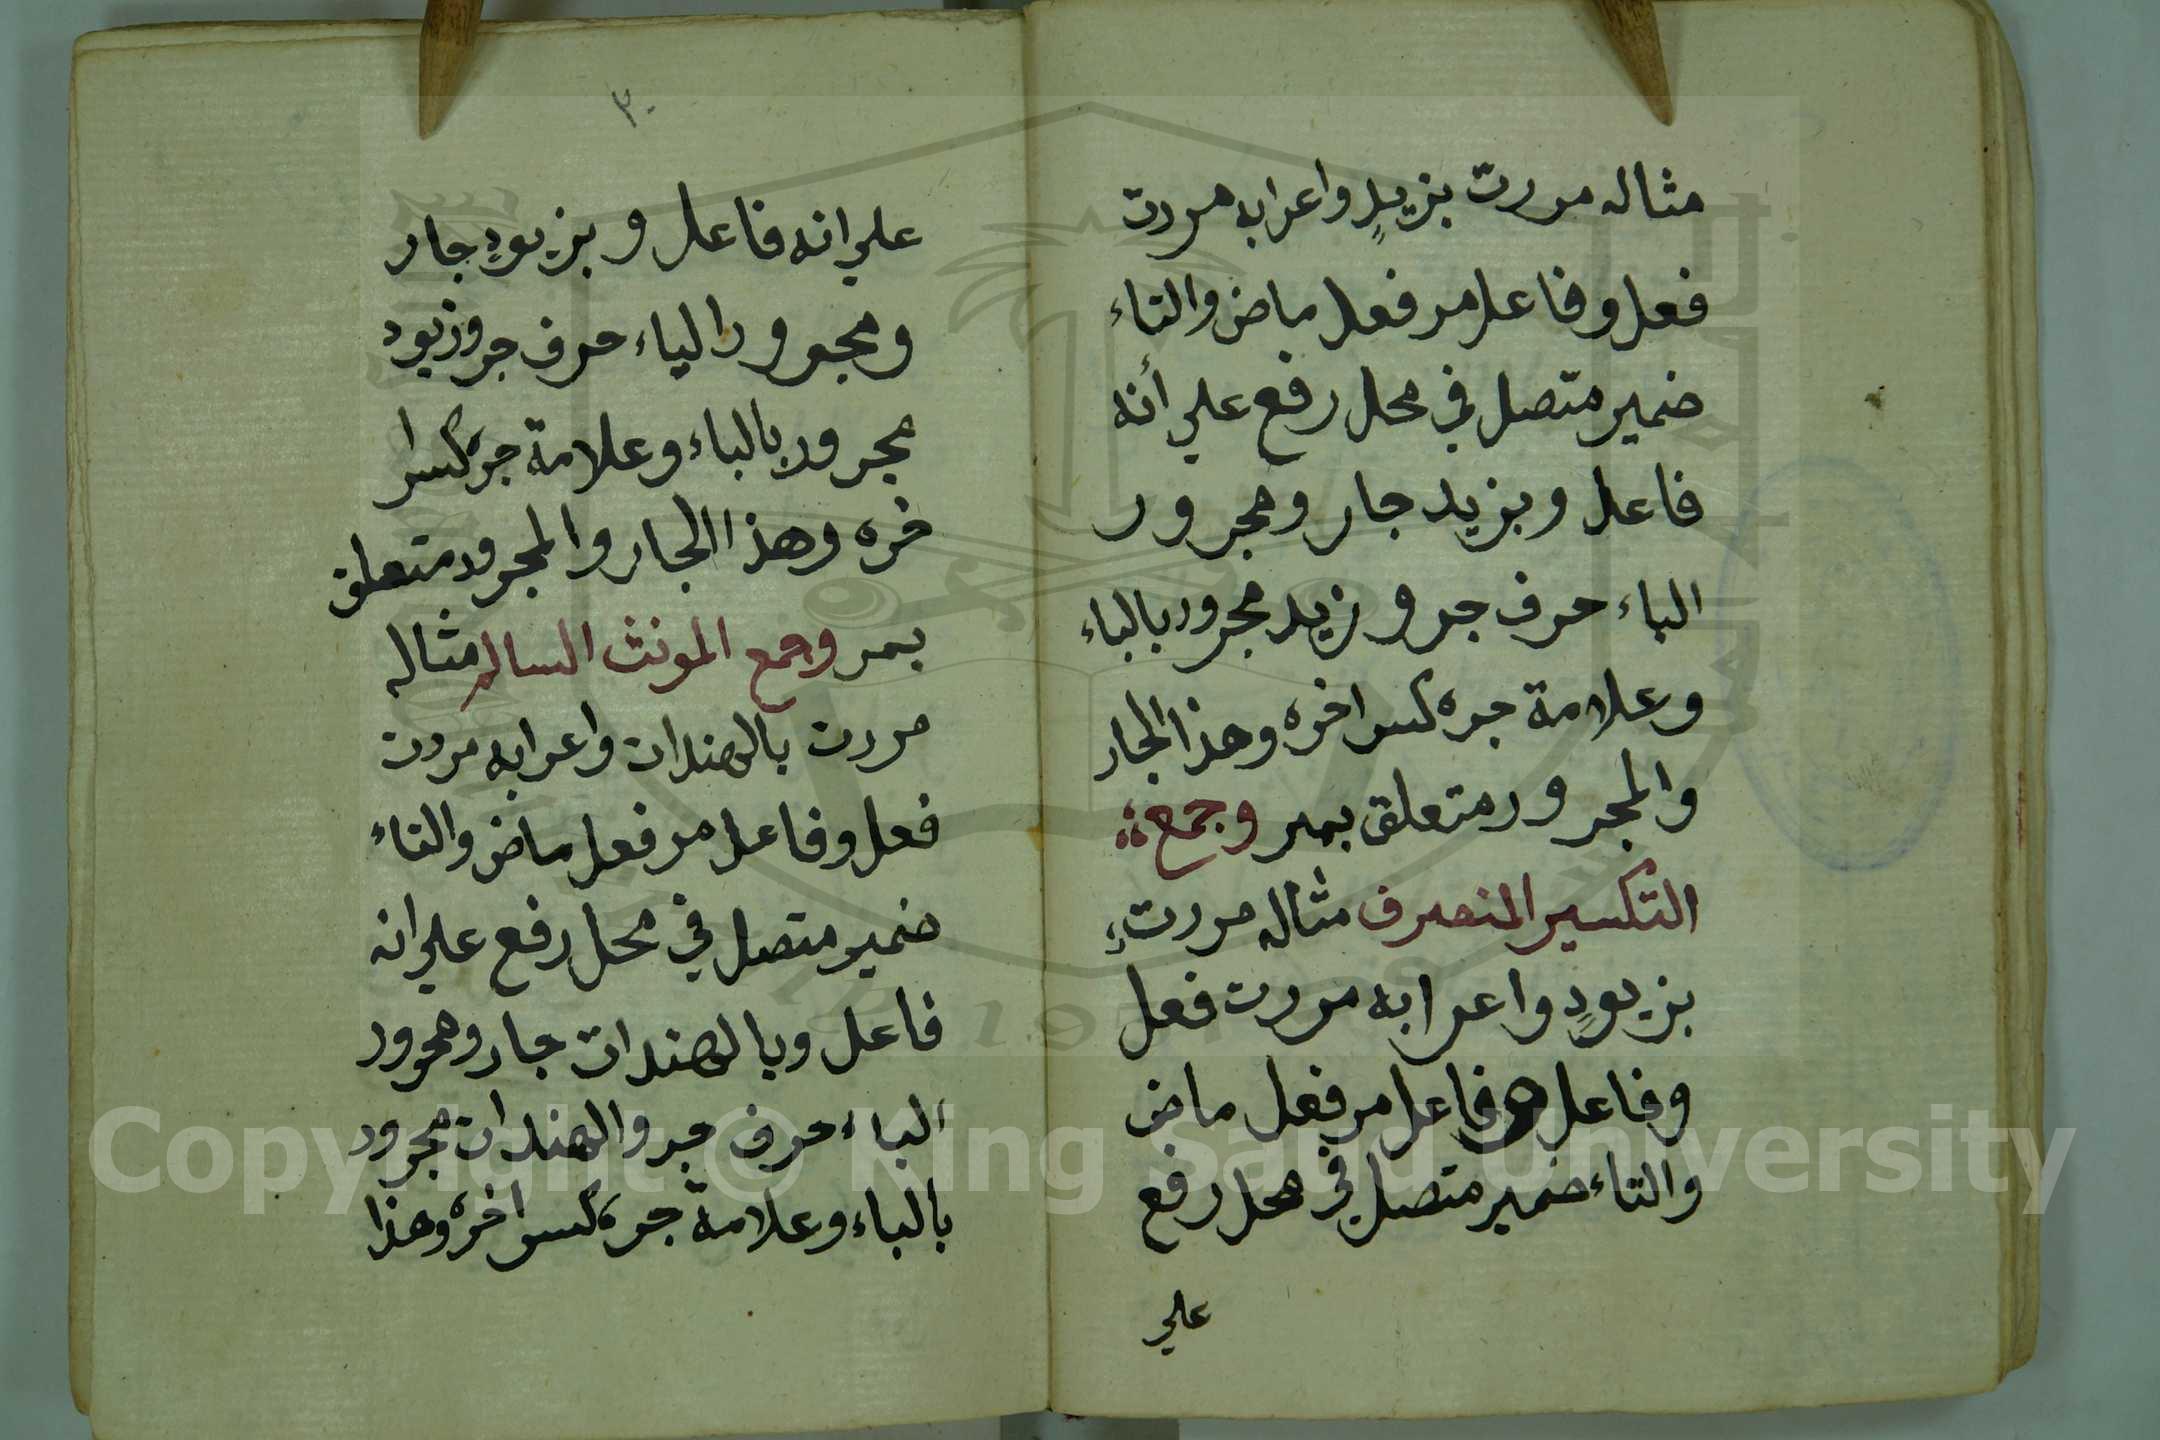 مثاله مررت بزيدٍ واعرابه مررت
فعل وفاعل مر فعل ماض والتاء
ضمير متصل في محل رفع علي أنه
فاعل وبزيد جار ومجرور
الباء حرف جر وزيد مجرور بالباء
وعلامة جره كسر اخره وهذا الجار
والمجرور متعلق بمر وجمع
التكسير المنصرف مثاله مررت
بزيودٍ واعرابه مررت فعل
وفاعل فاعل مر فعل ماض
والتاء ضمير متصل في محل رفع
علي
٣٠
علي انه فاعل وبزيودٍ جار
ومجرور الياء حرف جر وزيود
مجرور بالباء وعلامة جره كسر ا
خره وهذا الجار والمجرور متعلق
بمر وجمع المونث السالم مثاله
مررت بالهندات واعرابه مررت
فعل وفاعل مر فعل ماض والتاء
ضمير متصل في محل رفع علي انه
فاعل وبالهندات جار ومجرور
الباء حرف جر والهندات مجرور
بالباء وعلامة جره كسر اخره وهذا
Copyright © King Saud University